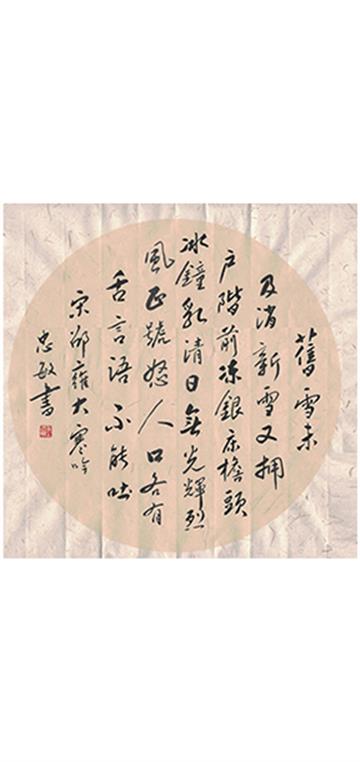 舊雪未
及消新雪又拥
户階前凍銀床檐頭
冰鐘乳清日無光輝烈
風正號怒人口各有
舌言語不能吐
宋邵雍大寒吟
忠敏書